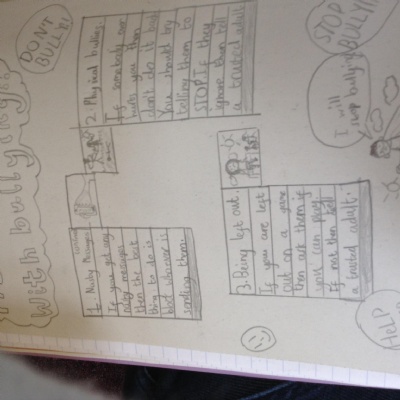 With bullying
DON'T
BULLY!
1. Nasty Messages
If you get any
messages
then the best
thing to do is
whoever is
sending them.
2. Physical bullies.
If somebody ever
hurts you then
don't do it back
You should try
telling them to
STOP If they
ignore then tell
a trusted adult
3. Being left out.
If you are left
out on a game
then ask them if
you can play.
If not then tell
a trusted adult.
STOP
BULLYING
I will
stop bullying
HELP